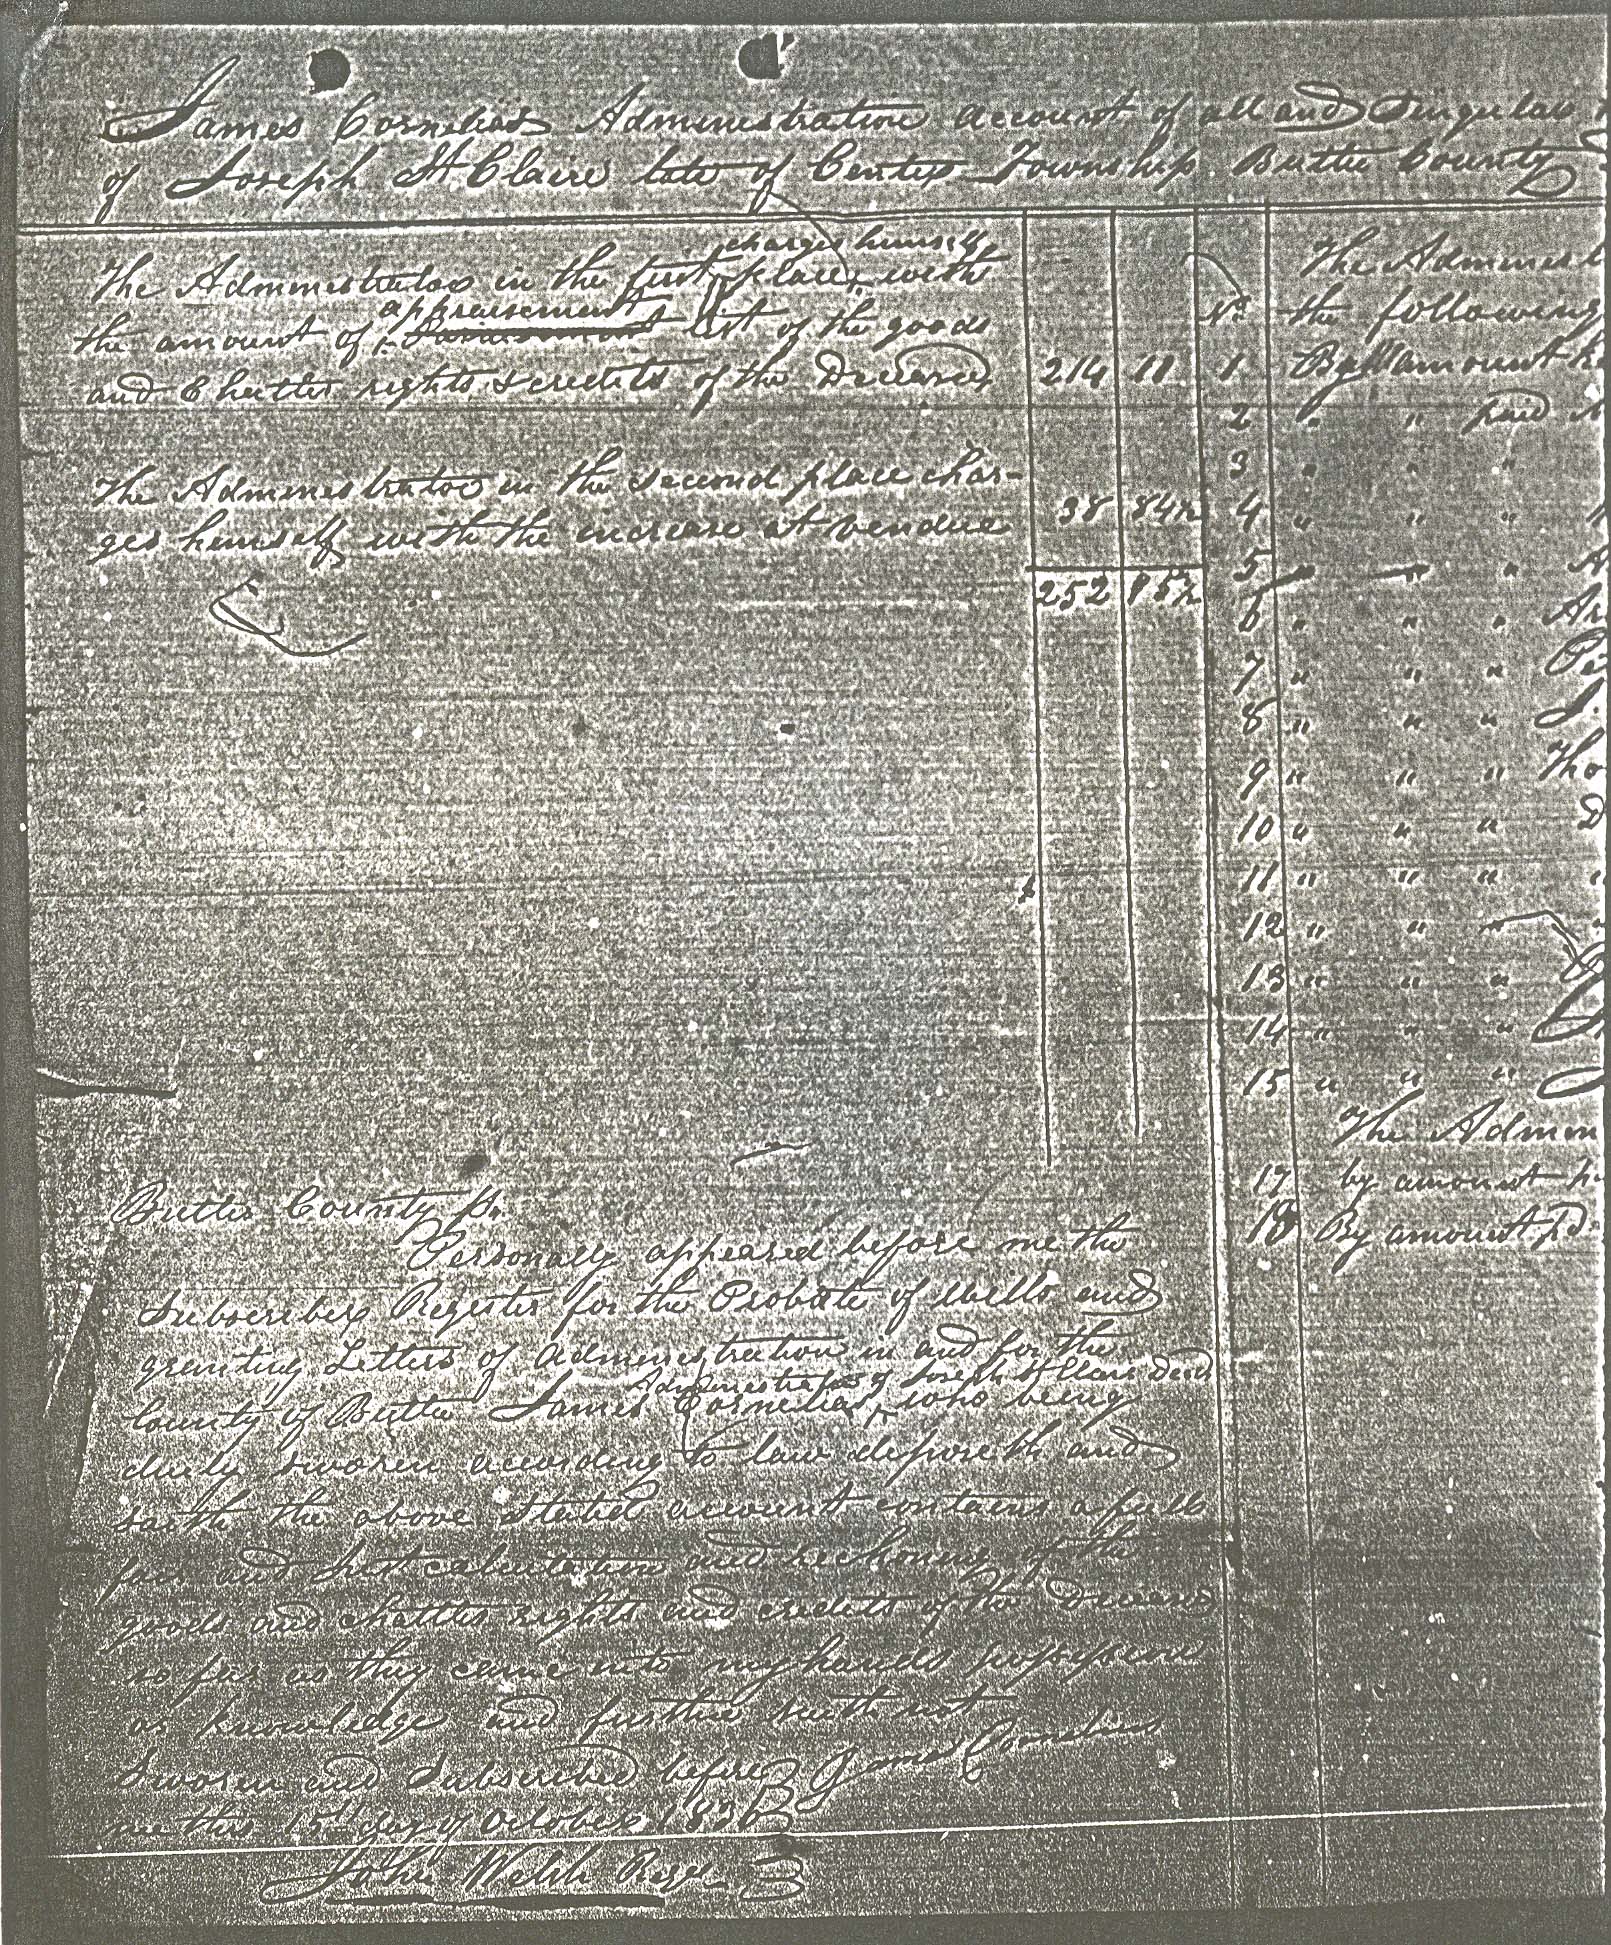 James Cornelius Administration account of all and Singular
of Joseph St. Claire late of Center Township Butler County
The Administrator in the first place charges himself with
the amount of appraisement list of the goods
and Chattles rights & credits of the Deceased 214 11
The Administrator in the second place char-
ges himself with the increase at vendue 38 84½
252 95½
The Administ
No the following
1 By amount
2 " " paid
3 " " "
4 " " "
5 " " " A
6 " " " Ar
7 " " " Pe
8 " " " J.
9 " " " Tho
10 " " " D
11 " " " "
12 " " " "
13 " " "
14 " " "
15 " " "
The Admin
17 by amount p
18 By amount pd
Butler County Ss.
Personally appeared before me the
Subscriber Register for the Probate of Wills and
granting Letters of Administration in and for the
County of Butler James Cornelius Administrator of Joseph St Clair Decd who being
duly sworn according to law deposeth and
saith the above Stated account contains a full
and calculation and reckoning of the
goods and chattles rights and credits of the Deceased
so far as they came into my hands possession
or knowledge and further saith not
Sworn and Subscribed before James Cornelius
me this 15th day of October 1836
John Welsh Regr